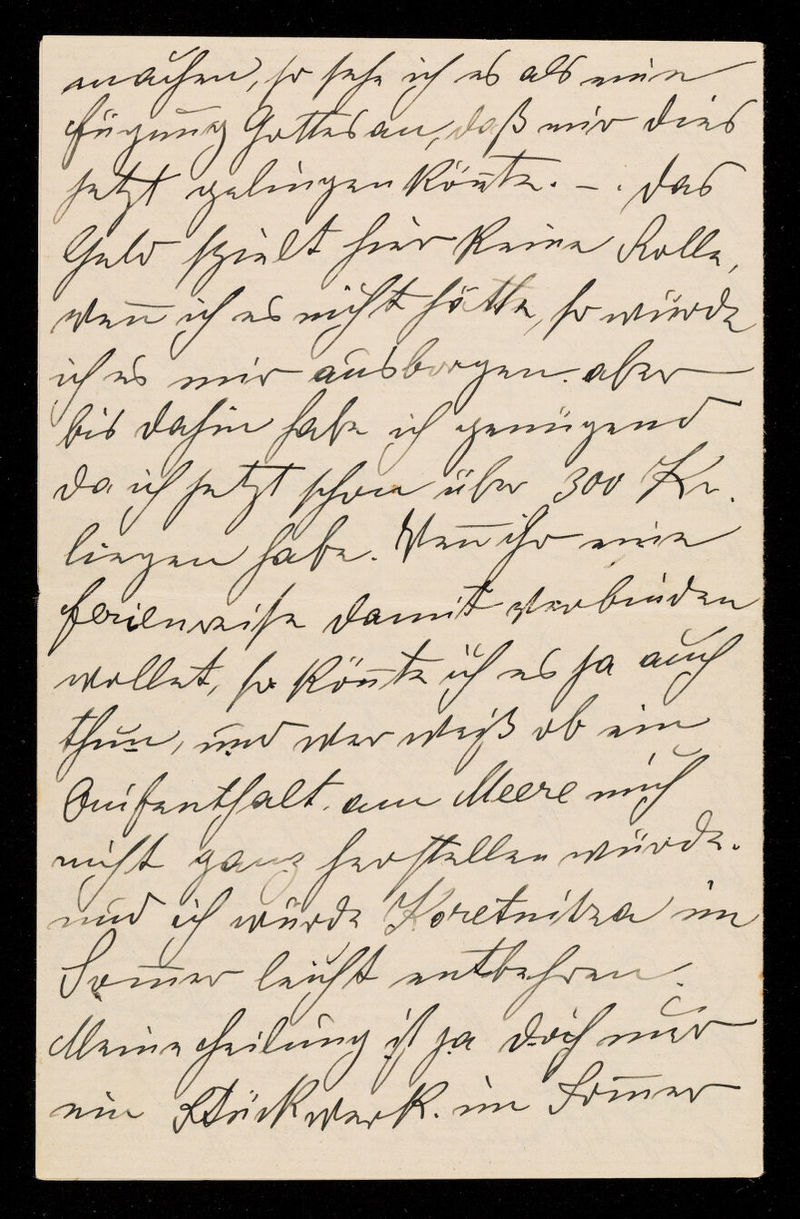 machen, so sehe ich es als eine
Fügung Gottes an, daß mir dies
jetzt gelingen kon̄te. –. Das
Geld spielt hier keine Rolle,
wen̄ ich es nicht hätte, so würde
ich es mir ausborgen. aber
bis dahin habe ich genügend
da ich jetzt schon über 300 Kr.
liegen habe. Wen̄ ihr eine
Ferienreise damit verbinden
wollet, so kön̄te ich es ja auch
thun, und wer weiß ob ein
Aufenthalt am Meere mich
nicht ganz herstellen würde.
und ich würde Koretnitza im
Som̄er leicht entbehren.
Meine Heilung ist ja doch nur
ein Stückwerk. im Som̄er